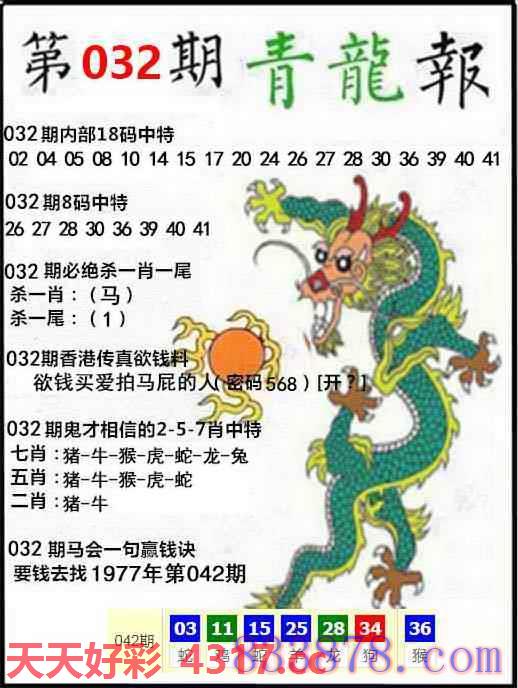 第032期 青龍報
032期内部18码中特
02 04 05 08 10 14 15 17 20 24 26 27 28 30 36 39 40 41
032期8码中特
26 27 28 30 36 39 40 41
032 期必绝杀一肖一尾
杀一肖：（马）
杀一尾：（1）
032期香港传真欲钱料
欲钱买爱拍马屁的人(密码568)[开？]
032期鬼才相信的2-5-7肖中特
七肖：猪-牛-猴-虎-蛇-龙-兔
五肖：猪-牛-猴-虎-蛇
二肖：猪-牛
032 期马会一句赢钱诀
要钱去找1977年第042期
042期 03 11 15 25 28 34 36
蛇 鸡 蛇 羊 龙 狗 猴
天天好彩 4317.cc